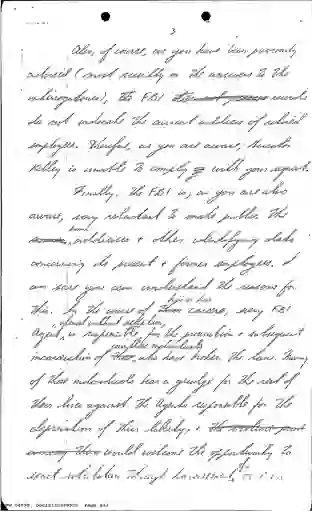 3
Also, of course, as you have been previously
advised (most recently in the answers to the
interrogatories), the FBI records
do not indicate the current address of retired
employees. Therefore, as you are aware, Director
Kelley is unable to comply with your request.
Finally, the FBI is, as you are also
aware, very reluctant to make public the
home addresses & other identifying data
concerning its present & former employees. I
am sure you can understand the reasons for
this. In the course of his or her career, every FBI
Agent, is responsible for the prosecution & subsequent
incarceration of who have broken the law. Many
of these individuals bear a grudge for the rest of
their lives against the Agents responsible for the
deprivation of their liberty, &
would welcome the opportunity to
exact retribution through harassment,